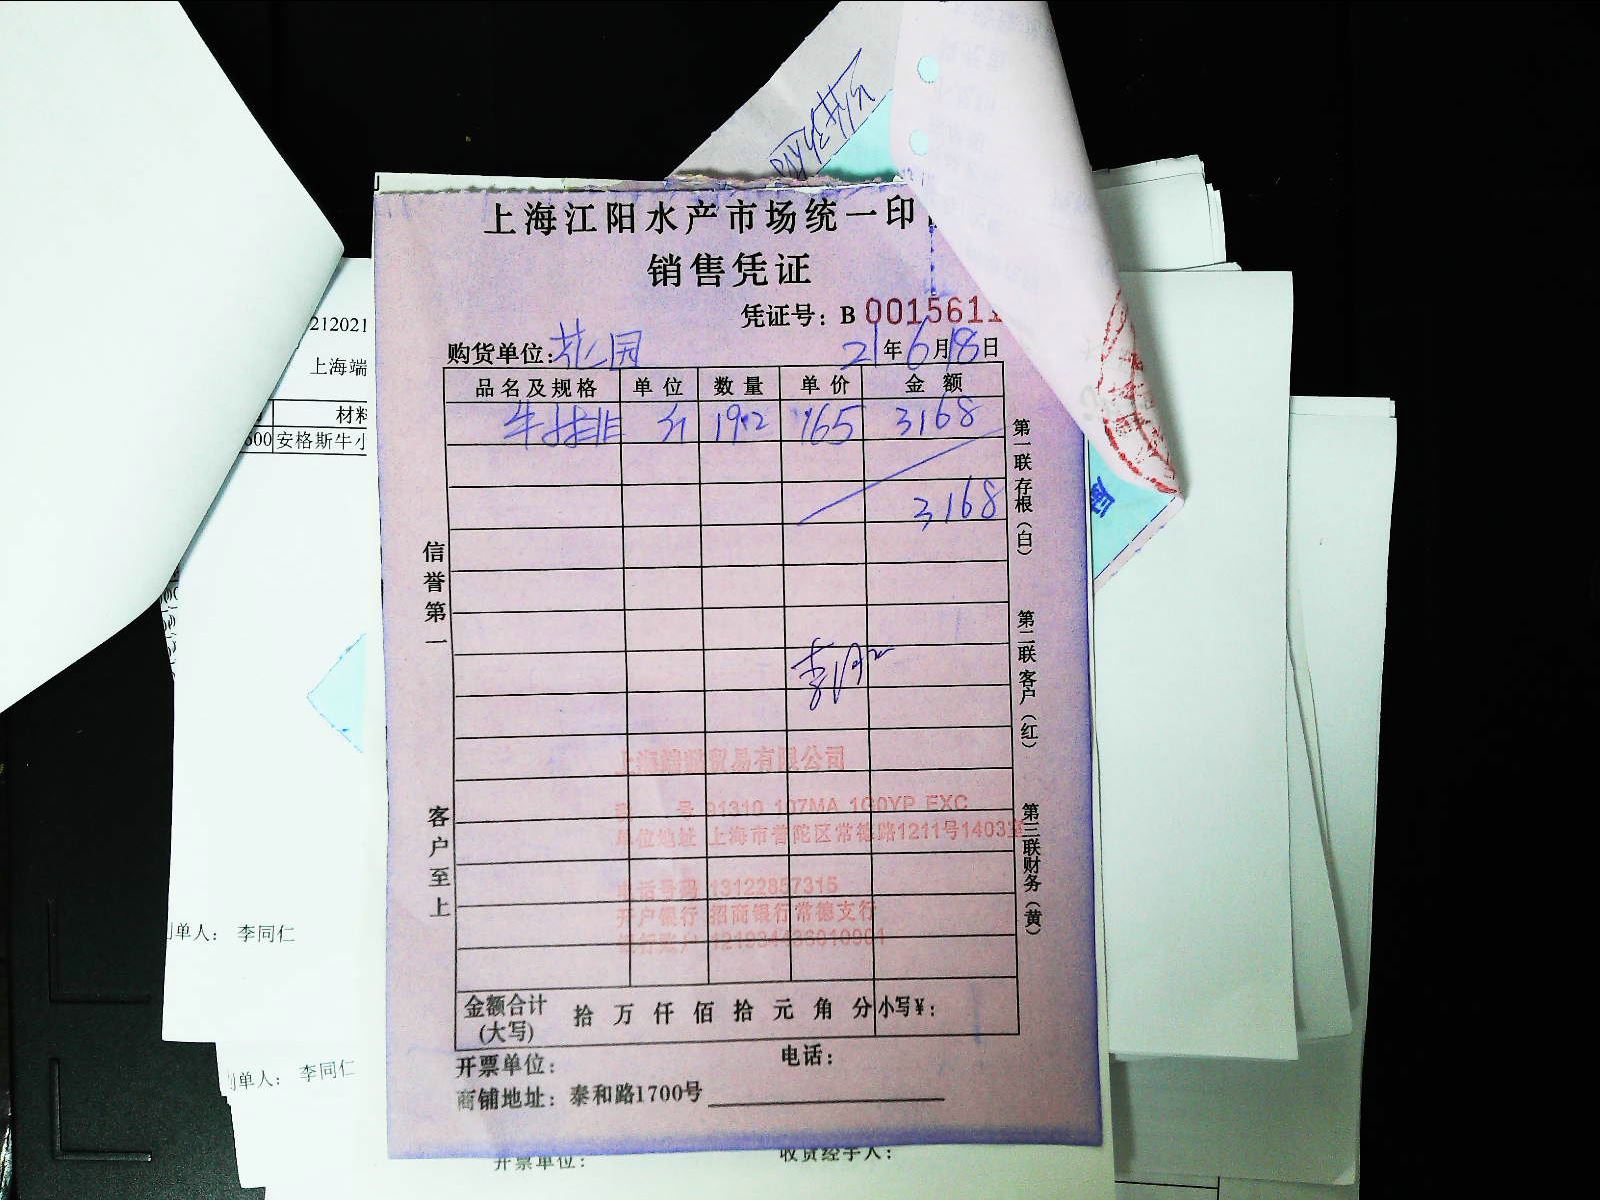 上海江阳水产市场统一印
销售凭证
凭证号：B 0015611
购货单位：花园 21年6月18日
品名及规格 单位 数量 单价 金额
牛排 斤 19.2 165 3168
3168
信誉第一
客户至上
第一联存根（白）
第二联客户（红）
第三联财务（黄）
贸易有限公司
号 91310 107MA 1G0YP EXC
单位地址 上海市普陀区常德路1211号1403室
电话号码 13122857315
开户银行 招商银行常德支行
金额合计(大写) 拾 万 仟 佰 拾 元 角 分 小写¥：
开票单位： 电话：
商铺地址：泰和路1700号
开票单位： 收货经手人：
212021
上海端
材料
00 安格斯牛小
单人： 李同仁
单人： 李同仁